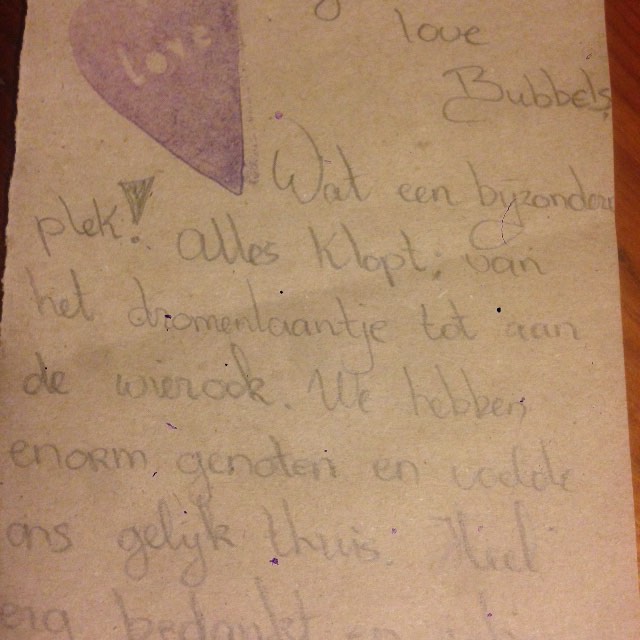 love
love
Bubbels
Wat een bijzondere
plek! Alles klopt, van
het dromenlaantje tot aan
de wierook. We hebben
enorm genoten en voelde
ons gelijk thuis. Heel
erg bedankt en